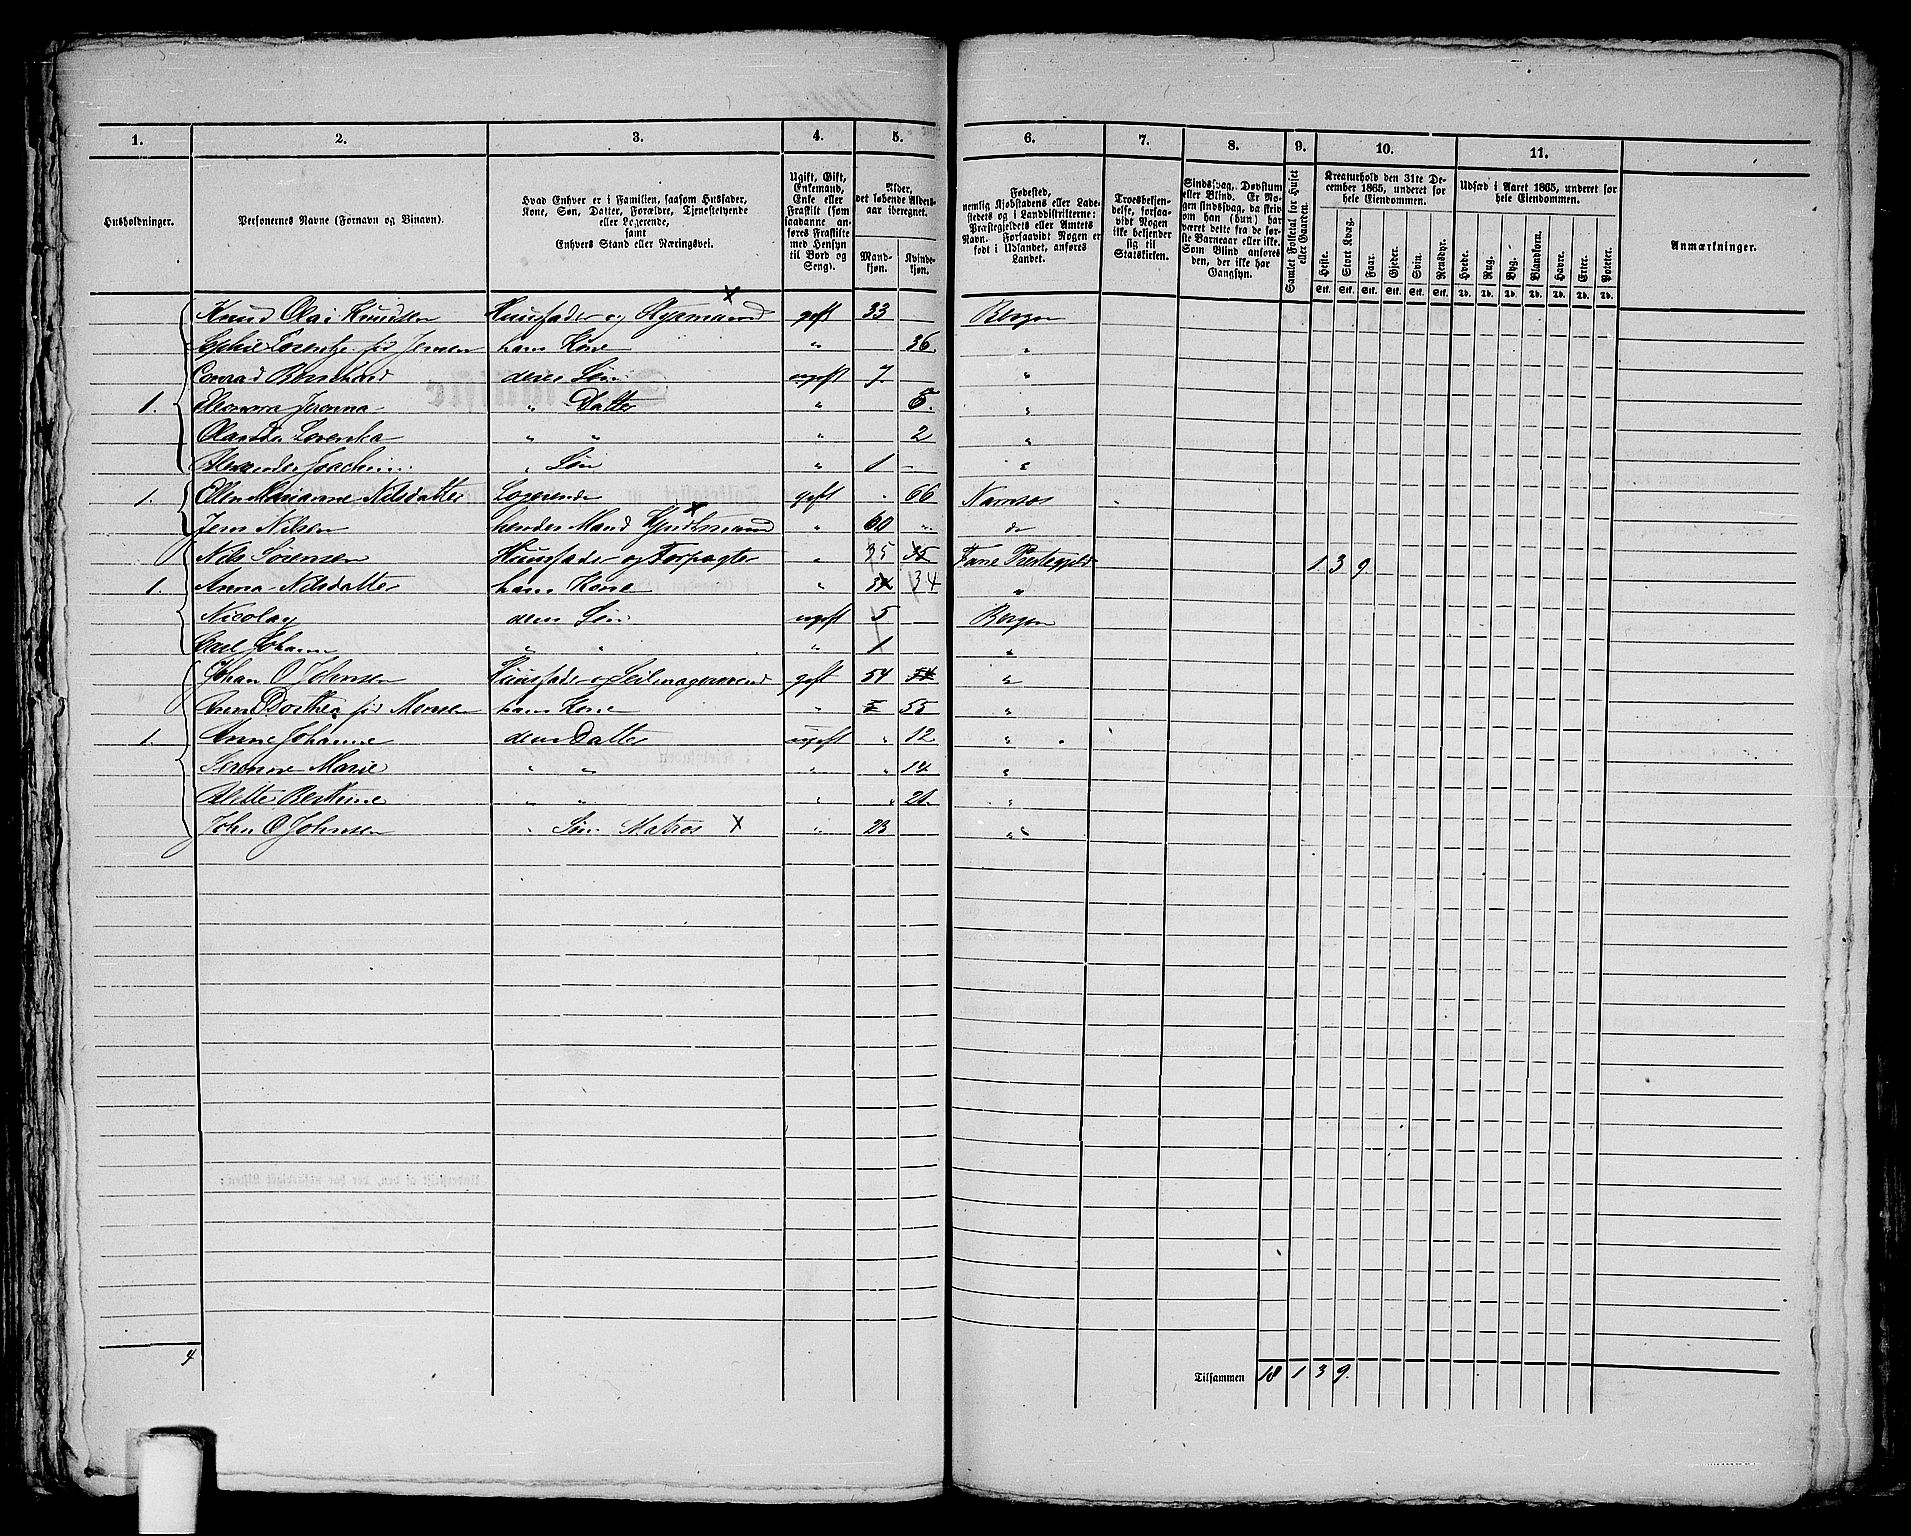 1. 2. 3. 4. 5. 6. 7. 8. 9. 10. 11.
Husholdninger.
Personernes Navne (Fornavn og Binavn).
Hvad Enhver er i Familien, saasom Husfader,
Kone, Søn, Datter, Forældre, Tjenestetyende
eller Logerende,
samt
Enhvers Stand eller Næringsvei.
Ugift, Gift,
Enkemand,
Enke eller
Fraskilt (som
saadanne an-
føres Fraskilte
med Hensyn
til Bord og
Seng).
Alder,
det løbende Alders-
aar iberegnet.
Mand-
kjøn.
Kvinde-
kjøn.
Fødested,
nemlig Kjøbstadens eller Lade-
stedets og i Landdistrikterne:
Præstegjeldets eller Amtets
Navn. Forsaavidt Nogen er
født i Udlandet, anføres
Landet.
Troesbekjen-
delse, forsaa-
vidt Nogen
ikke bekjender
sig til
Statskirken.
Sindssvag, Døvstum
eller Blind. Er No-
gen sindssvag, da skriv
om han (hun) har
været dette fra de før-
ste Barneaar eller ikke.
Som Blind anføres
den, der ikke har
Gangsyn.
Samlet Folketal for Huset
eller Gaarden.
Kreaturhold den 31te De-
cember 1865, underet for
hele Eiendommen.
Heste. Stort Kvæg. Faar. Gjeder. Svin. Rensdyr.
Stk. Stk. Stk. Stk. Stk. Stk.
Udsæd i Aaret 1865, underet for
hele Eiendommen.
Hvede. Rug. Byg. Blandkorn. Havre. Erter. Poteter.
Td. Td. Td. Td. Td. Td. Td.
Anmærkninger.
Knud Olai Knudsen Huusfader og Styrmand x gift 33 Bergen
Sophie Lorentze fød Jensen hans Kone " 36 "
Conrad Bernhard deres Søn ugift 7 "
1. Eleonora Jeronna " Datter " 5. "
Olander Lorenka " " " 2 "
Alexander Joachim " Søn " 1 "
1. Ellen Marianne Nilsdatter Logerende gift 66 Namsos
Jens Nilsen hendes Mand x " 60 " do
Nils Sørensen Huusfader og Forpagter " 35 35 Fane Prestegjeld 1. 3 9.
1. Anna Nilsdatter hans Kone " 34 34 "
Nicolay deres Søn ugift 5 Bergen
Carl Johann " " " 1 "
Johan O Johnsen Huusfader og Seilmagersvend gift 54 54 "
Anne Dorthea fød Monsen hans Kone " 55 "
1. Anne Johanne deres Datter ugift " 12 "
Serenne Marie " " " " 14. "
Alette Berthine " " " " 21. "
John O Johnsen " Søn Matros x " 23 "
4
Tilsammen 18 1 3 9.